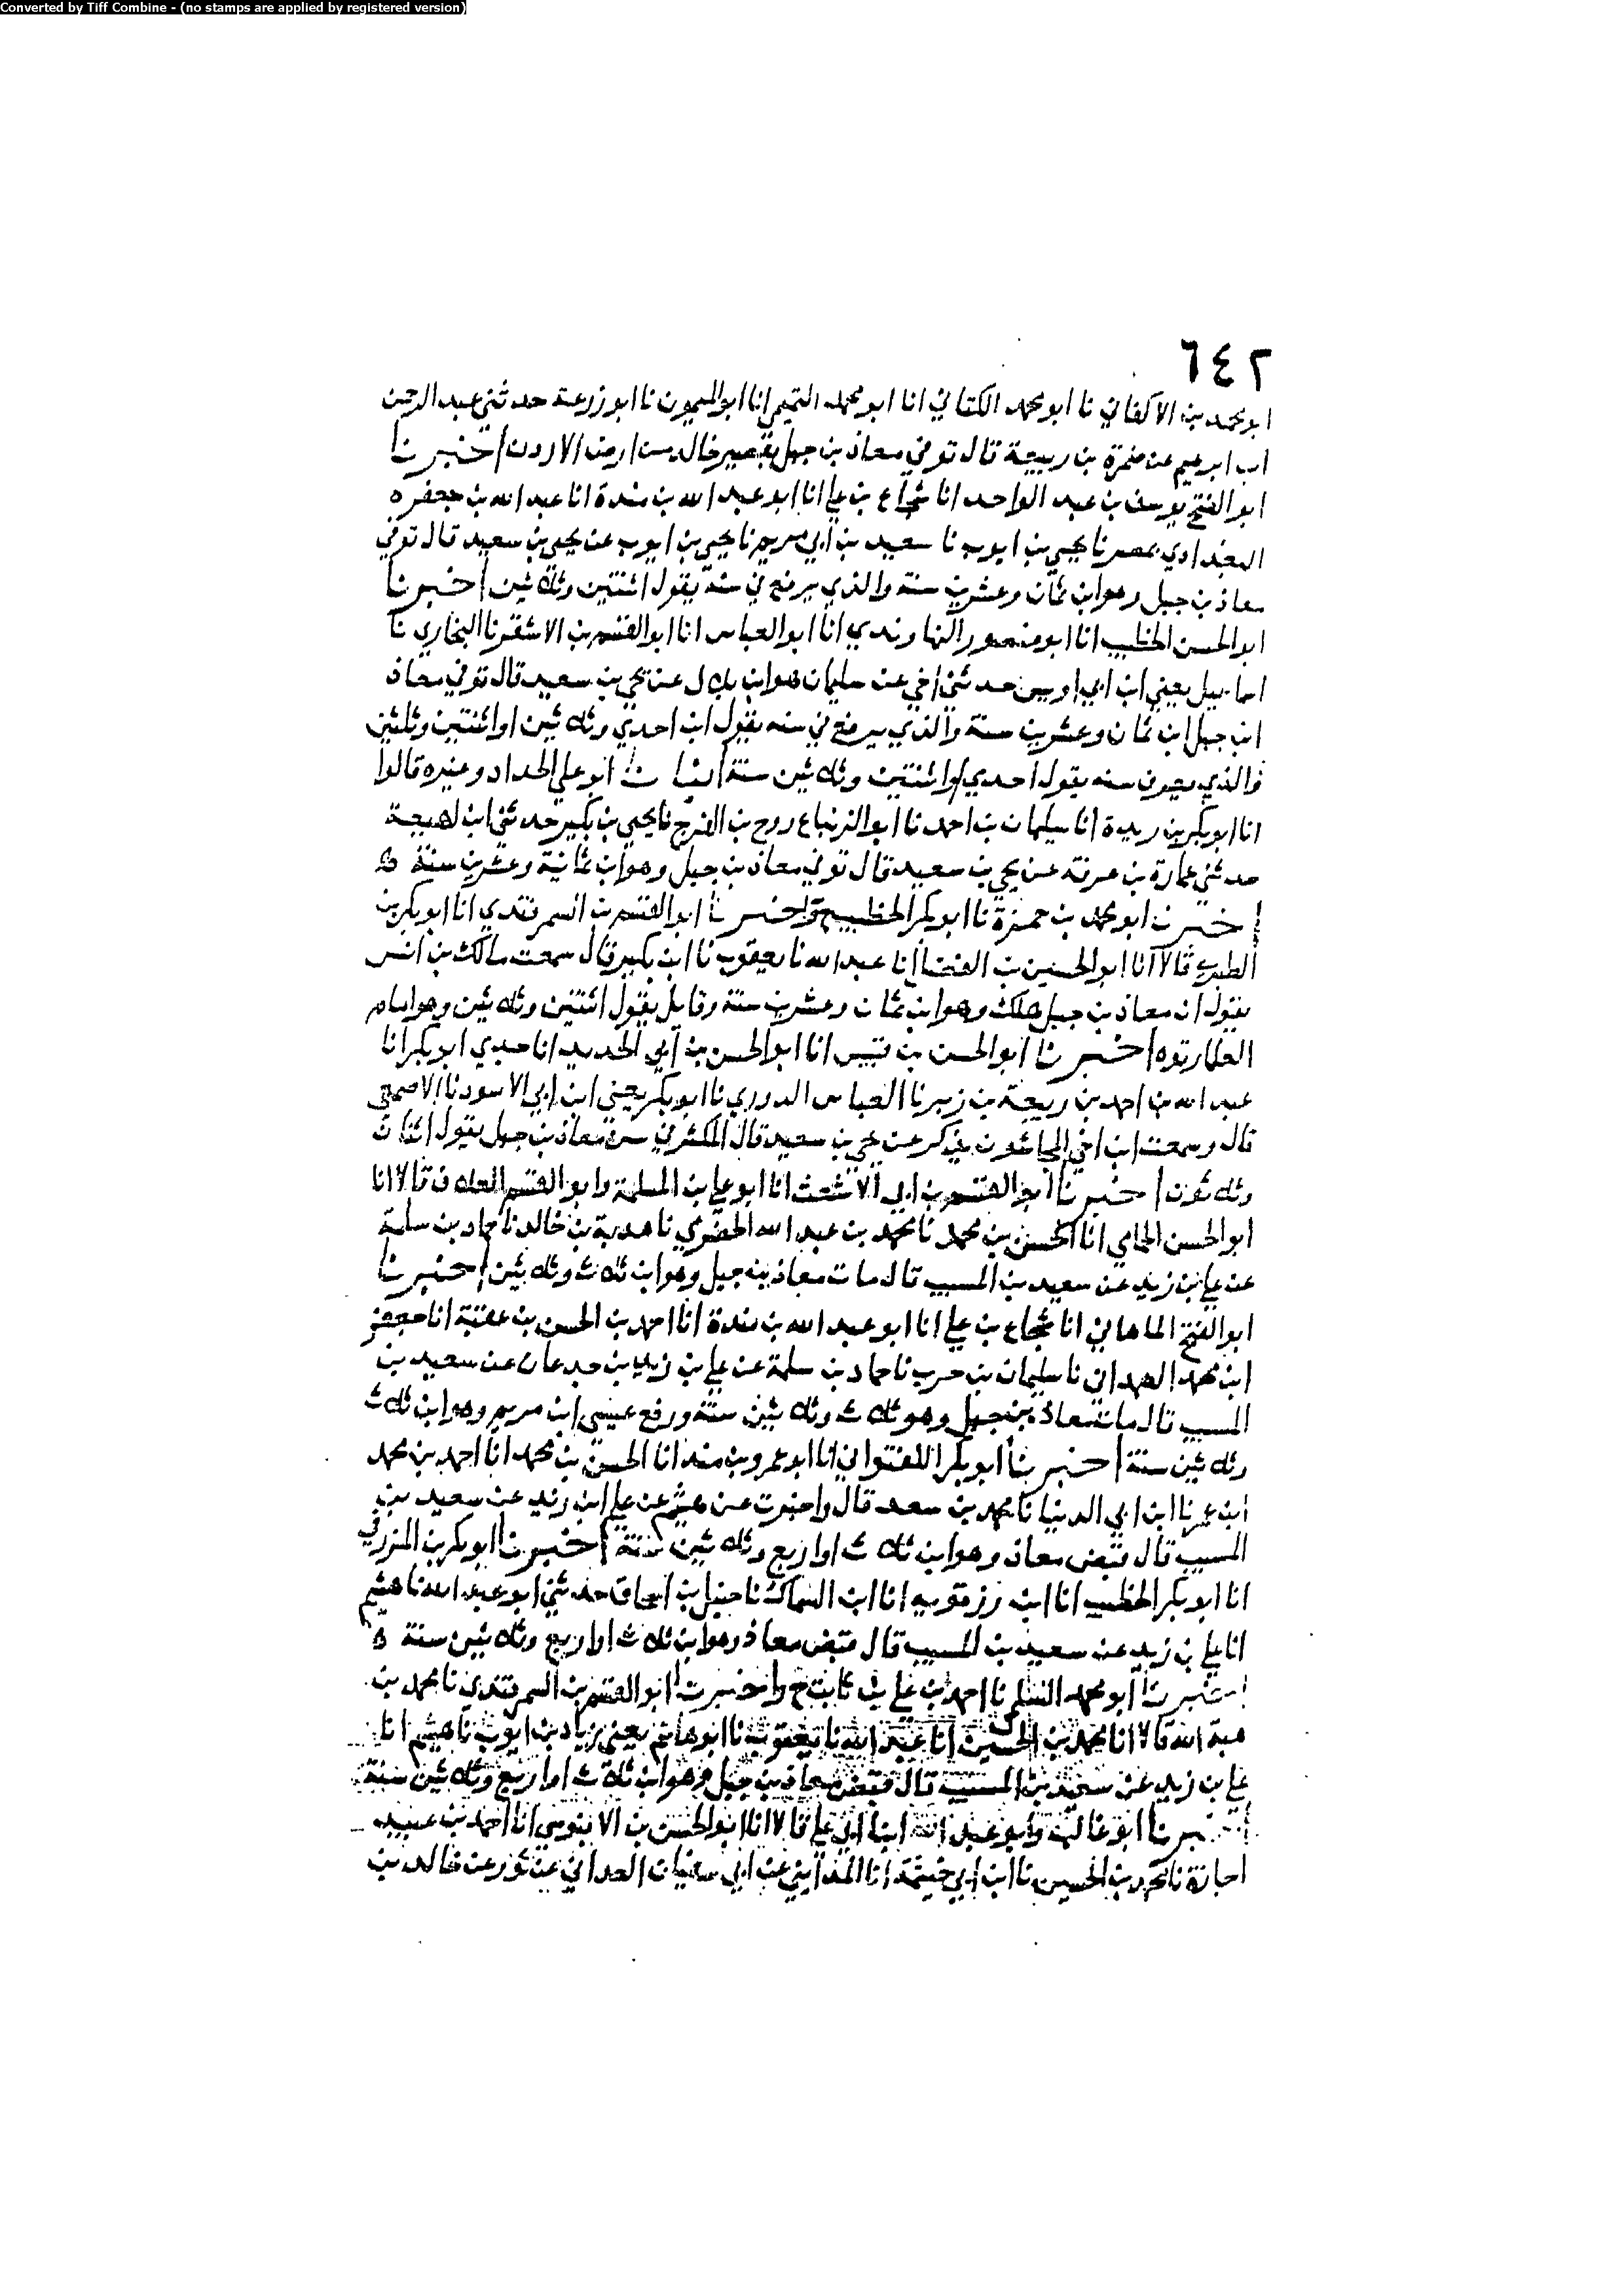 Converted by Tiff Combine - (no stamps are applied by registered version)
٦٤٢
ابو محمد بن الاكفاني نا ابو محمد الكتاني انا ابو محمد التميمي انا ابو الميمون نا ابو زرعة حدثني عبد الرحمن
ابن ابرهيم عن ضمرة بن ربيعة قال توفي معاذ بن جبل بقصير خالد من ارض الاردن اخبرنا
ابو الفتح يوسف بن عبد الواحد انا شجاع بن علي انا ابو عبد الله بن مندة انا عبد الله بن جعفر
البغدادي بمصر نا يحيى بن ايوب نا سعيد بن ابي مريم نا يحيى بن ايوب عن يحيى بن سعيد قال توفي
معاذ بن جبل وهو ابن ثمان وعشرين سنة والذي يرفع في سنة يقول اثنتين وثلاثين اخبرنا
ابو الحسن الخطيب انا ابو منصور النهاوندي انا ابو العباس انا ابو القسم بن الاشقر نا البخاري نا
اسماعيل يعني ابن ابي اويس حدثني اخي عن سليمان هو ابن بلال عن يحيى بن سعيد قال توفي معاذ
ابن جبل ابن ثمان وعشرين سنة والذي يرفع في سنه يقول ابن احدى وثلاثين او اثنتين وثلثين
فالذي سنه يقول احدي او اثنتين وثلاثين سنة انبانا ابو علي الحداد وغيره قالوا
انا ابو بكر بن ريدة انا سليمان بن احمد نا ابو الزنباع روح بن الفرج نا يحيى بن بكير حدثني ابن لهيعة
حدثني عمارة بن عرفة عن يحيى بن سعيد قال توفي معاذ بن جبل وهو ابن ثمانية وعشرين سنة ه
اخبرنا ابو محمد بن حمزة نا ابو بكر الخطيب ح واخبرنا ابو القسم بن السمرقندي انا ابو بكر بن
الطبري قالا انا ابو الحسين بن الفضل انا عبد الله نا يعقوب نا ابن بكير قال سمعت مالك بن انس
يقول ان معاذ بن جبل هلك وهو ابن ثمان وعشرين سنة وقايل يقول اثنتين وثلاثين وهو امام
العلما رتوه اخبرنا ابو الحسن بن قبيس انا ابو الحسن بن ابي الحديد انا جدي ابو بكر انا
عبد الله بن احمد بن ربيعة بن زبر نا العباس الدوري نا ابو بكر يعني ابن ابي الاسود نا الاصمعي
قال وسمعت ابن اخي الماجشون يذكر عن يحيى بن سعيد قال المكثر في سن معاذ بن جبل يقول اثنان
وثلاثون اخبرنا ابو القسم بن ابي الاشعث انا ابو علي بن المسلمة وابو القسم العلاف قالا انا
ابو الحسن الحمامي انا الحسن بن محمد نا محمد بن عبد الله الحضرمي نا هدبة بن خالد نا حماد بن سلمة
عن علي بن زيد عن سعيد بن المسيب قال مات معاذ بن جبل وهو ابن ثلاث وثلاثين اخبرنا
ابو الفتح الماهاني انا شجاع بن علي انا ابو عبد الله بن مندة انا احمد بن الحسن بن عقتبة انا جعفر
ابن محمد نا سليمان بن حرب نا حماد بن سلمة عن علي بن زيد بن جدعان عن سعيد بن
المسيب قال مات معاذ بن جبل وهو ثلاث وثلاثين سنة ورفع عيسى ابن مريم وهو ابن ثلاث
وثلاثين سنة اخبرنا ابو بكر اللفتواني انا ابو عمرو بن منده انا الحسن بن محمد انا احمد بن محمد
ابن عمر نا ابن ابي الدنيا نا محمد بن سعد قال واخبرت عن هشيم عن علي ابن زيد عن سعيد بن
المسيب قال قبض معاذ وهو ابن ثلاث او اربع وثلاثين سنة اخبرنا ابو بكر بن المزرفي
انا ابو بكر الخطيب انا ابن رزقويه انا ابن السماك نا حنبل بن اسحاق حدثني ابو عبد الله نا هشيم
انا علي بن زيد عن سعيد بن المسيب قال قبض معاذ وهو ابن ثلاث او اربع وثلاثين سنة ه
اخبرنا ابو محمد السلمي نا احمد بن علي بن ثابت ح واخبرنا ابو القسم بن السمرقندي نا محمد بن
هبة الله قالا انا محمد بن الحسين انا عبد الله نا يعقوب نا ابو هاشم يعني زياد بن ايوب نا هشيم انا
علي بن زيد عن سعيد بن المسيب قال قبض معاذ بن جبل وهو ابن ثلاث او اربع وثلاثين سنة
اخبرنا ابو غالب وابو عبد الله ابنا ابي علي قالا انا ابو الحسن بن الابنوسي انا احمد بن عبيد
اجازة نا محمد بن الحسين نا ابن ابي خيثمة انا المدايني عن ابي سفيان الغداني عن ثور عن خالد بن